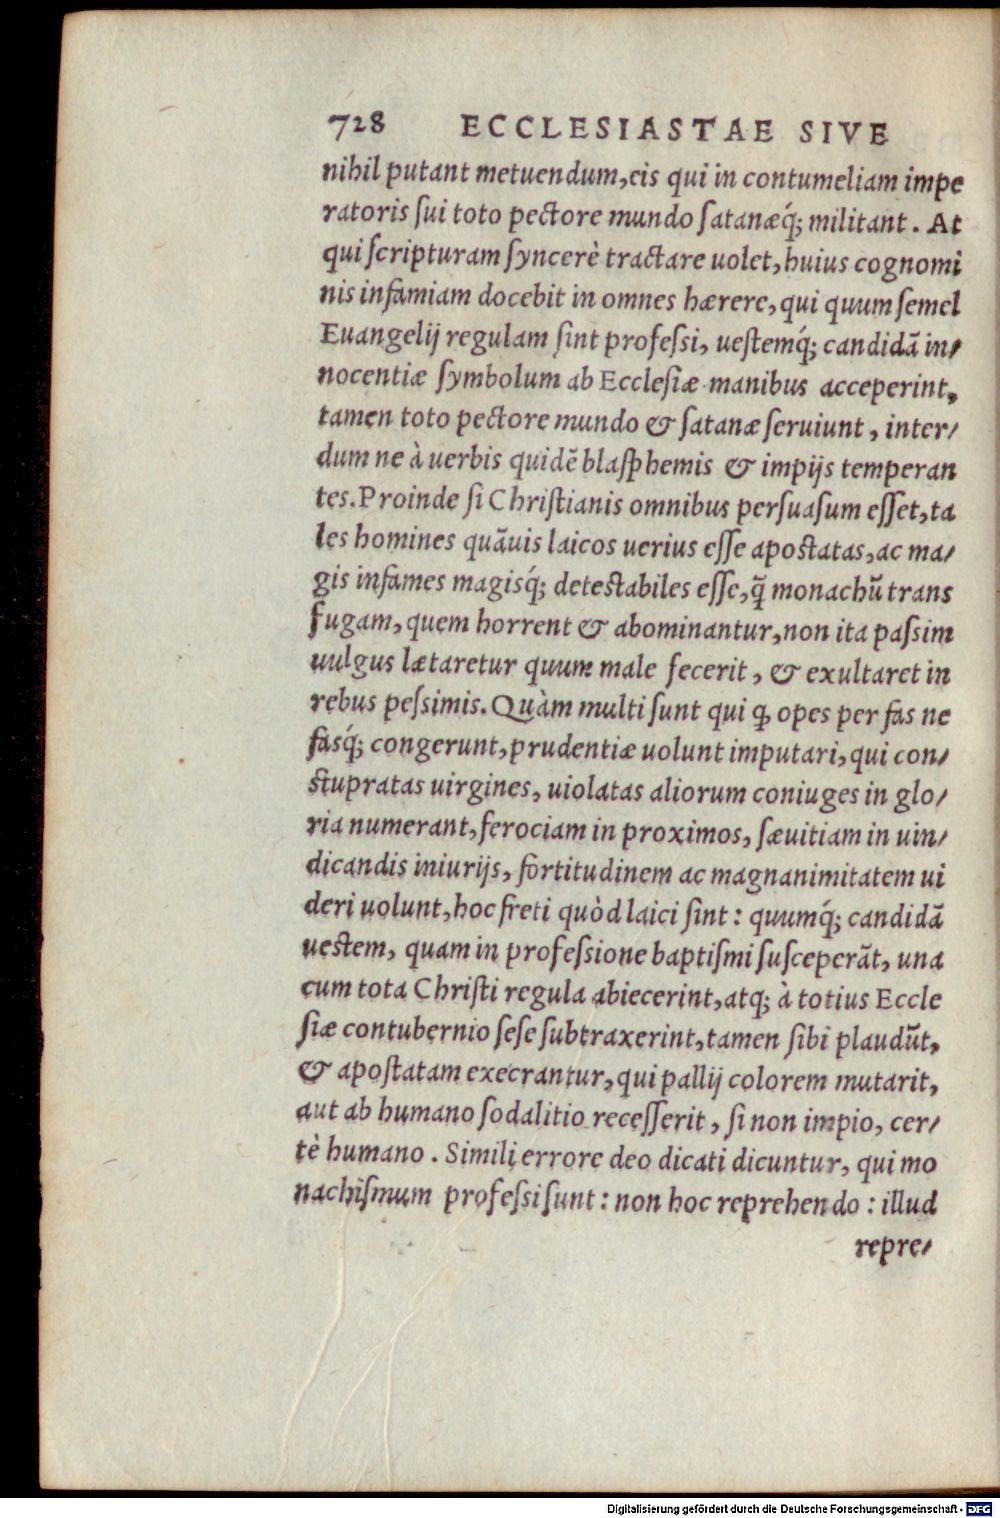 728 ECCLESIASTAE SIVE
nihil putant metuendum, eis qui in contumeliam impe
ratoris ſui toto pectore mundo ſatanæq́; militant. At
qui ſcripturam ſyncerè tractare uolet, huius cognomi
nis infamiam docebit in omnes hærere, qui quum ſemel
Euangelij regulam ſint profeſsi, ueſtemq́; candidā in/
nocentiæ ſymbolum ab Eccleſiæ manibus acceperint,
tamen toto pectore mundo & ſatanæ ſeruiunt, inter/
dum ne à uerbis quidē blaſphemis & impijs temperan
tes. Proinde ſi Chriſtianis omnibus perſuaſum eſſet, ta
les homines quāuis laicos uerius eſſe apoſtatas, ac ma/
gis infames magisq́; deteſtabiles eſſe, q̃ monachū trans
fugam, quem horrent & abominantur, non ita paſsim
uulgus lætaretur quum male fecerit, & exultaret in
rebus peſsimis. Quàm multi ſunt qui ꝙ opes per fas ne
faſq́; congerunt, prudentiæ uolunt imputari, qui con/
ſtupratas uirgines, uiolatas aliorum coniuges in glo/
ria numerant, ferociam in proximos, ſæuitiam in uin/
dicandis iniurijs, fortitudinem ac magnanimitatem ui
deri uolunt, hoc freti quòd laici ſint: quumq́; candidā
ueſtem, quam in profeſsione baptiſmi ſuſceperāt, una
cum tota Chriſti regula abiecerint, atq; à totius Eccle
ſiæ contubernio ſeſe ſubtraxerint, tamen ſibi plaudūt,
& apoſtatam execrantur, qui pallij colorem mutarit,
aut ab humano ſodalitio receſſerit, ſi non impio, cer/
tè humano. Simili errore deo dicati dicuntur, qui mo
nachiſmum profeſsi ſunt: non hoc reprehendo: illud
repre/
Digitalisierung gefördert durch die Deutsche Forschungsgemeinschaft - DFG